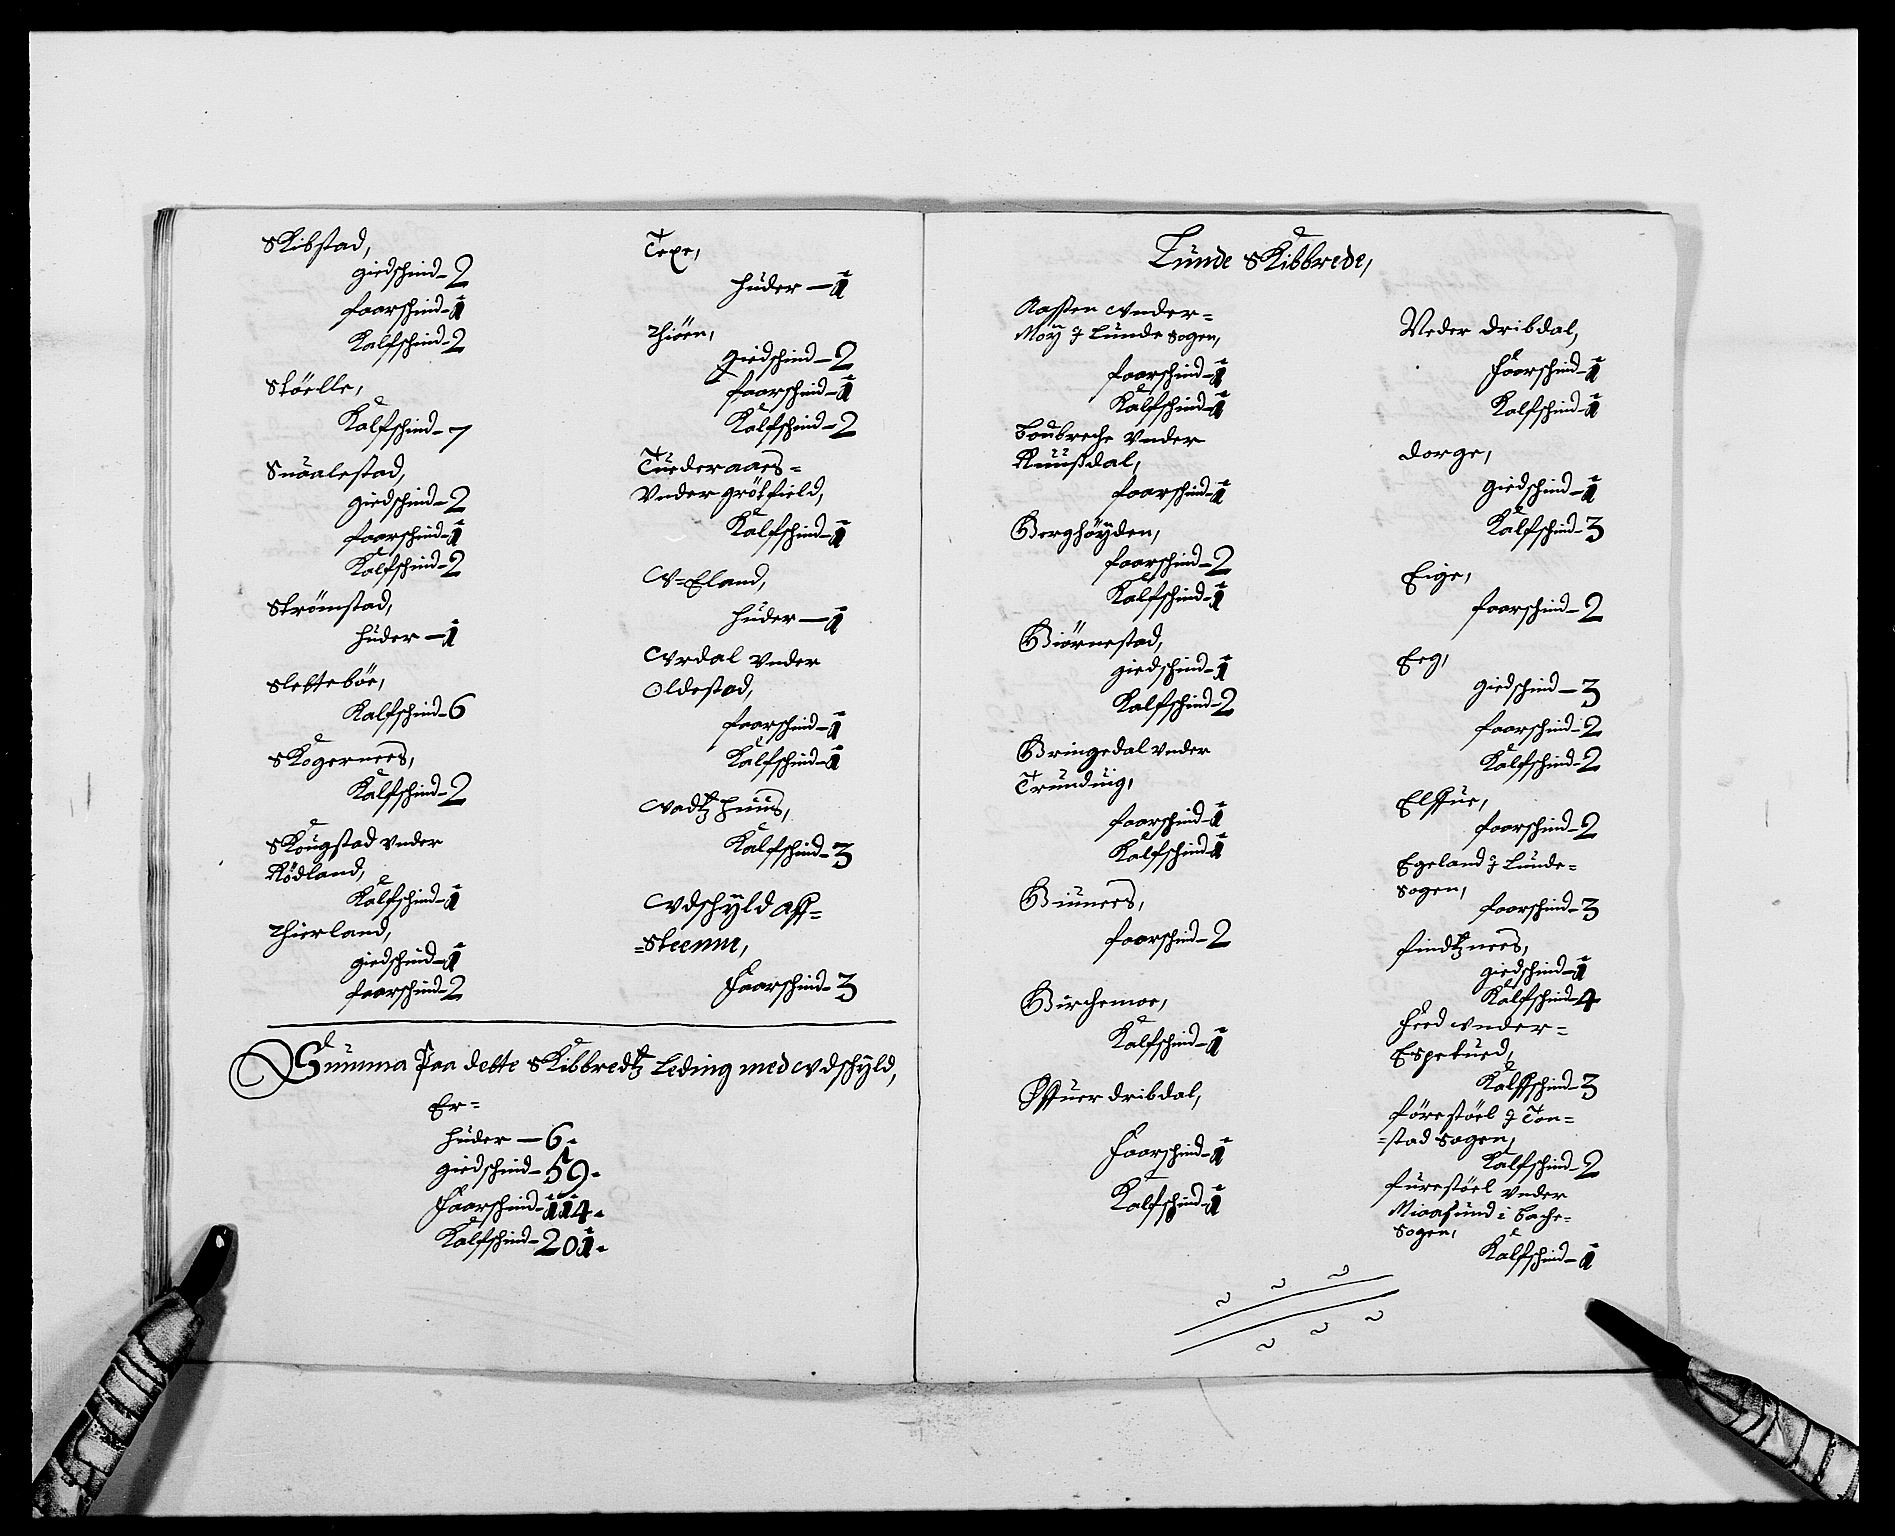 Skibstad,
giedschind - 2
faarschind - 1
Kalfschind - 2
Stöelle,
Kalfschind - 7
Snaalestad,
giedschind - 2
faarschind - 1
Kalfschind - 2
Strömstad,
huder - 1
Slettebøe,
Kalfschind - 6
Skogernees,
Kalfschind - 2
Skougstad vnder
Rödland,
Kalfschind - 1
Thierland,
giedschind - 1
faarschind - 2
Texe,
huder - 1
Thiöen,
giedschind - 2
faarschind - 1
Kalfschind - 2
Tuederaaes=
vnder grötfield,
Kalfschind - 1
V=Eland,
huder - 1
Vrdal vnder
Oldestad,
faarschind - 1
Kalfschind - 1
Vadtz huus,
Kalfschind - 3
Vdschÿld aff=
=Steenm,
Faarschind - 3
Summa Paa dette Skibbredtz Leding med Vdschÿld,
Er=
huder - 6.
giedschind - 59.
Faarschind - 114.
Kalfschind - 201.
Lunde Skibbrede,
Aassen vnder=
Moÿ J Lunde Sogen,
faarschind - 1
Kalfschind - 1
Boubreche vnder
Ruussdal,
faarschind - 1
Berghöÿden,
faarschind - 2
Kalfschind - 1
Biörnestad,
giedschind - 1
Kalfschind - 2
Bringedal vnder
Trunduig,
faarschind - 1
Kalfschind - 1
Biunees,
faarschind - 2
Birchemoe,
Kalfschind - 1
Øffuer dribdal,
Faarschind - 1
Kalfschind - 1
Neder dribdal,
Faarschind - 1
Kalfschind - 1
dorge,
giedschind - 1
Kalfschind - 3
Eige,
faarschind - 2
Eeg,
giedschind - 3
faarschind - 2
Kalfschind - 2
Elffue,
faarschind - 2
Egeland J Lunde=
Sogen,
faarschind - 3
findtznees,
giedschind - 1
Kalfschind - 4
Feed vnder=
Espetued,
Kalffschind - 3
förestöel J Ton=
=stad Sogen,
Kalfschind - 2
furestöel vnder
Miaasund i Bache=
Sogen,
Kalfschind - 1